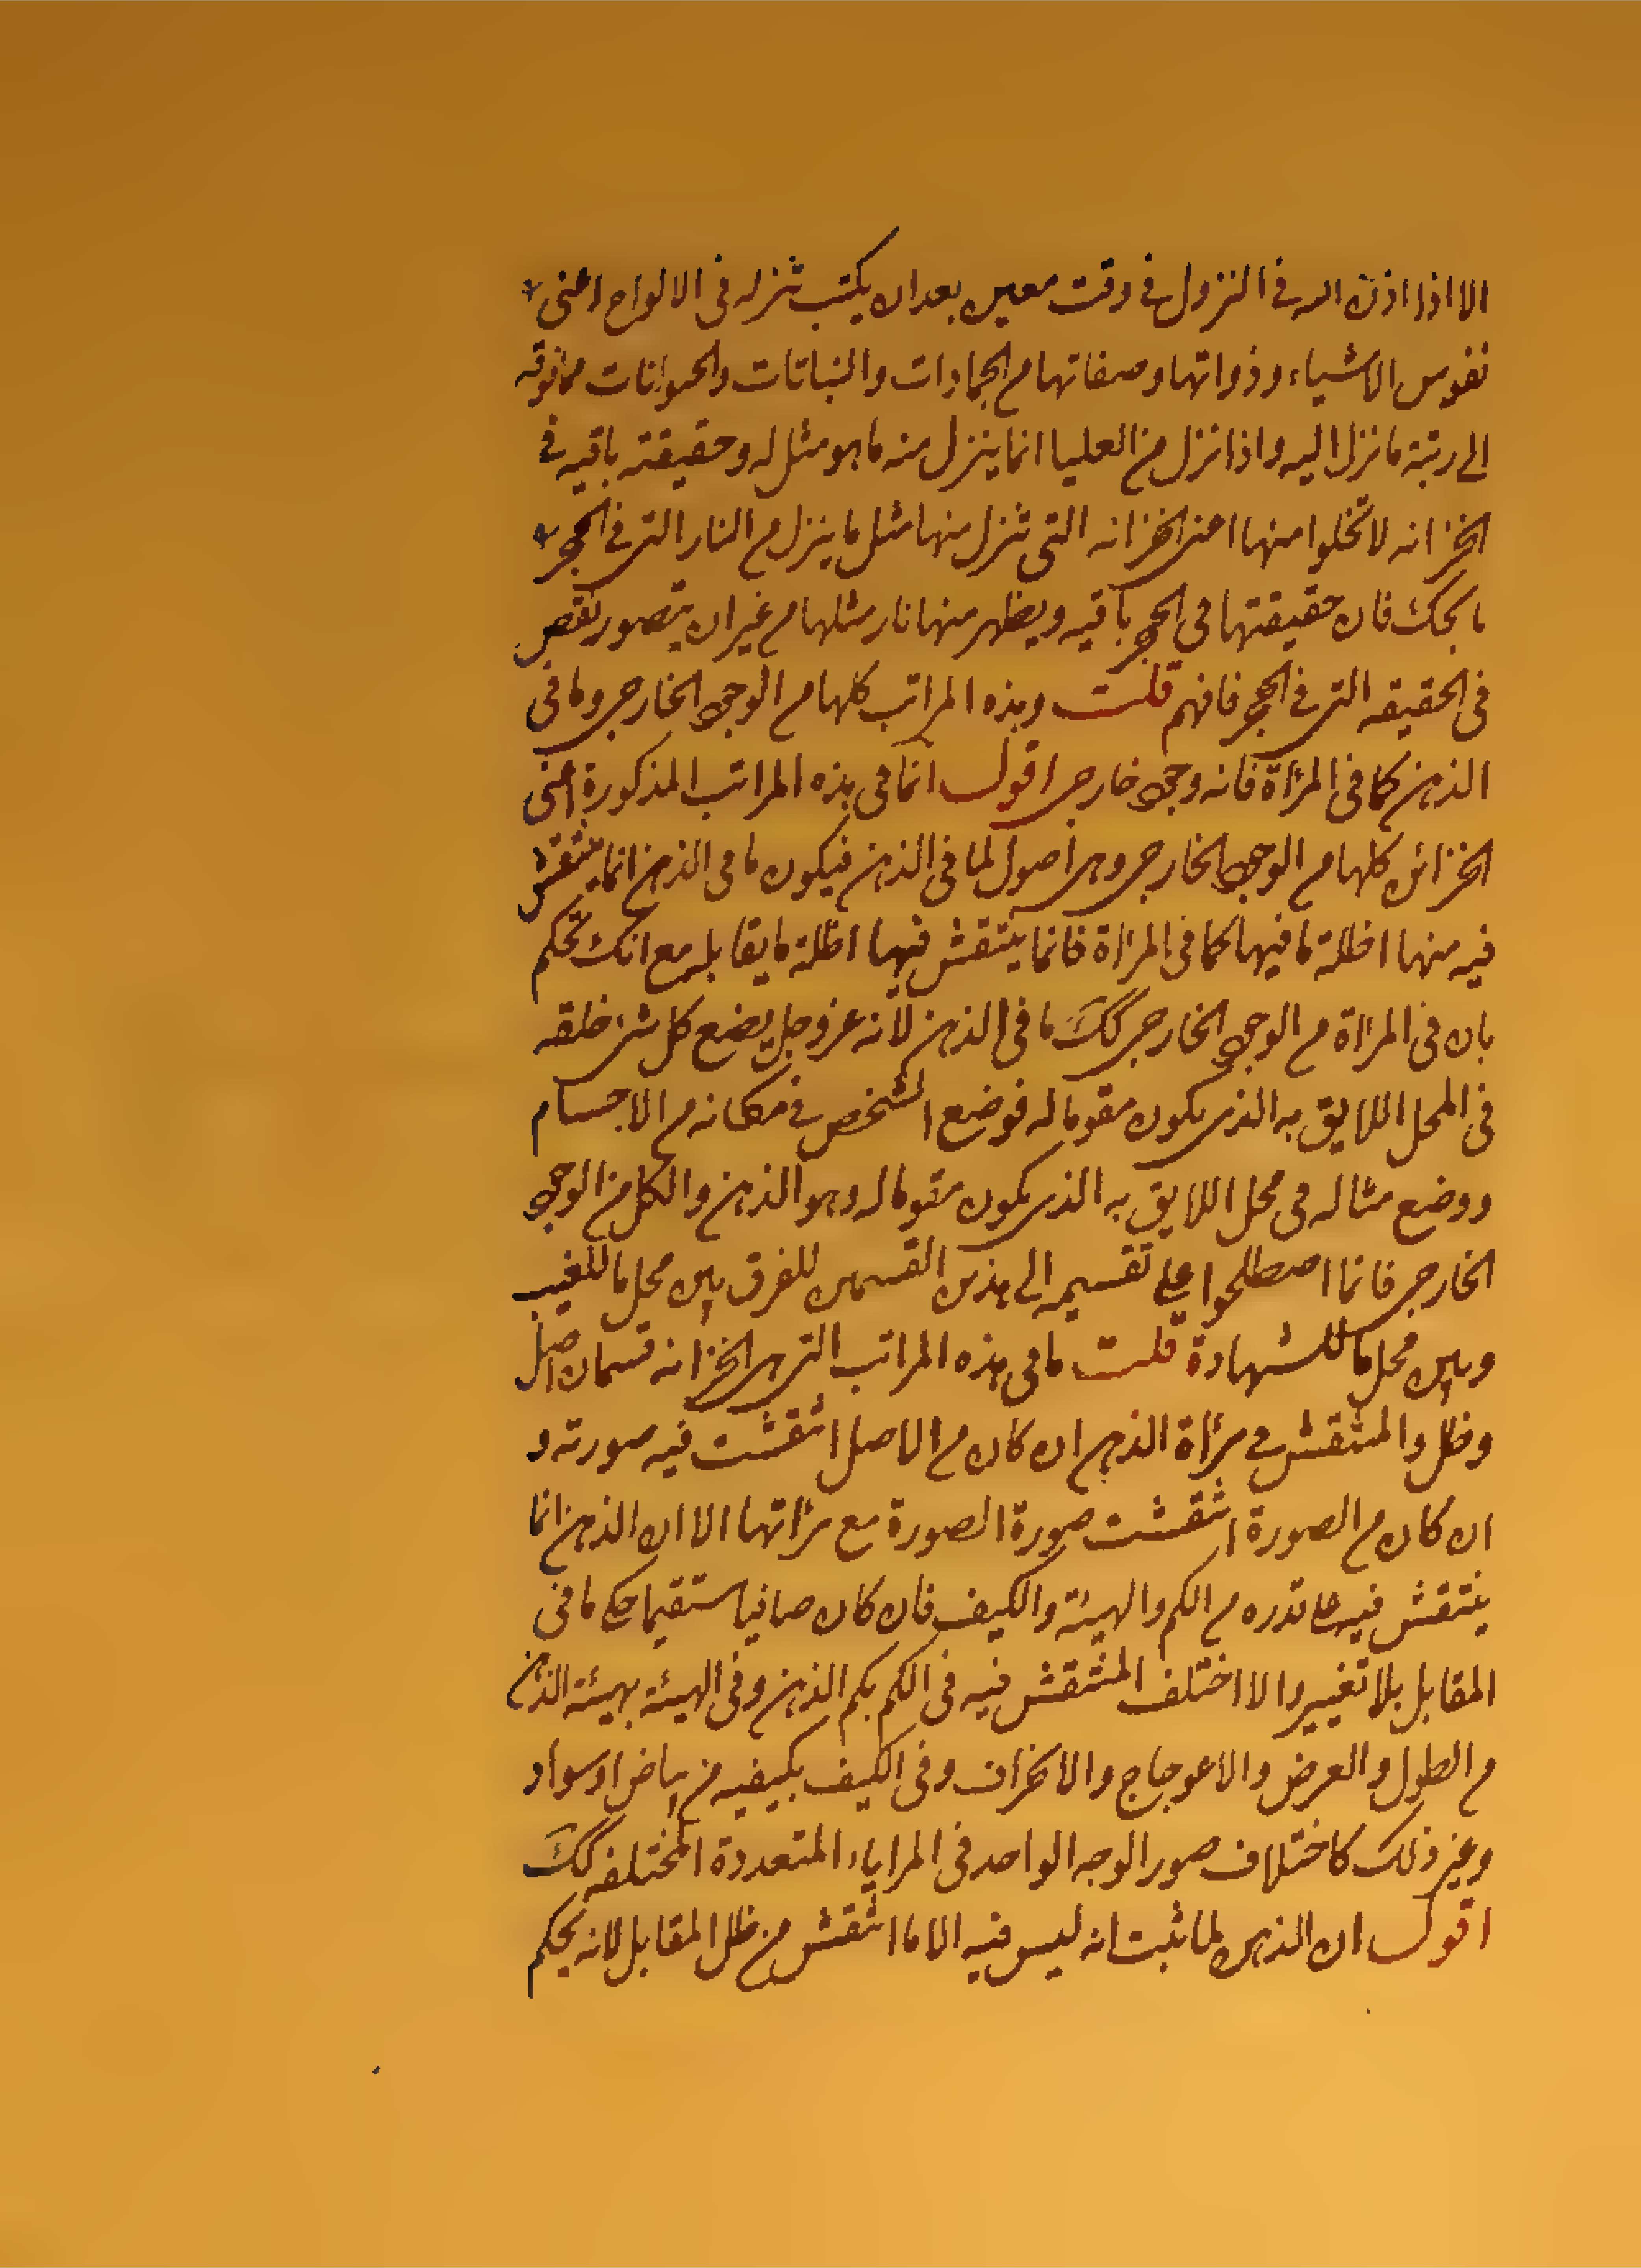 الا اذا اذن الله في النزول في وقت معين بعد ان يكتب تنزله في الالواح اعني
نفوس الاشياء وذواتها وصفاتها م الجمادات والنباتات والحيوانات مما فوقه
الى رتبة ما نزل اليه واذا نزل من العليا انما ينزل منه ما هو مثل له وحقيقته باقيه في
الخزانه لا تخلوا منها اعني الخزانه التي تنزل منها مثل ما ينزل م النار التي في الحجر
بالحك فان حقيقتها في الحجر باقيه ويظهر منها نار مثلها م غير ان يتصور نقص
في الحقيقه التي في الحجر فافهم قلت وهذه المراتب كلها م الوجود الخارجي وما في
الذهن كما في المرآة فانه وجود خارجي اقول انما في هذه المراتب المذكورة اعني
الخزائن كلها م الوجود الخارجي وهي اصول لما في الذهن فيكون ما في الذهن انما ينتقش
فيه منها اظلة ما فيها كما في المرآة فانما ينتقش فيها اظلة ما يقابله مع انك تحكم
بان في المرآة م الوجود الخارجي كك ما في الذهن لانه عز وجل يضع كل شئ خلقه
في المحل اللايق به الذي يكون مقوما له فوضع الشخص في مكانه م الاجسام
ووضع مثاله في محل اللايق به الذي يكون مقوما له وهو الذهن والكل من الوجود
الخارجي فانما اصطلحوا على تقسيمه الى هذين القسمين للفرق بين محل ما للغيب
وبين محل ما للشهادة قلت ما في هذه المراتب التي هي الخزانه قسمان اصل
وظل والمنتقش في مرآة الذهن ان كان م الاصل انتقشت فيه صورته و
ان كان م الصورة انتقشت صورة الصورة مع مرآتها الا ان الذهن انما
ينتقش فيه على قدره م الكم والهيئة والكيف فان كان صافيا مستقيما حكى ما في
المقابل بلا تغيير والا اختلف المنتقش فيه في الكم بكم الذهن وفي الهيئة بهيئة الذهن
م الطول والعرض والاعوجاج والانحراف وفي الكيف بكيفيه من بياض او سواد
وغير ذلك كاختلاف صور الوجه الواحد في المراياء المتعددة المختلفه كك
اقول ان الذهن لما ثبت انه ليس فيه الا ما انتقش من ظل المقابل لانه يحكم